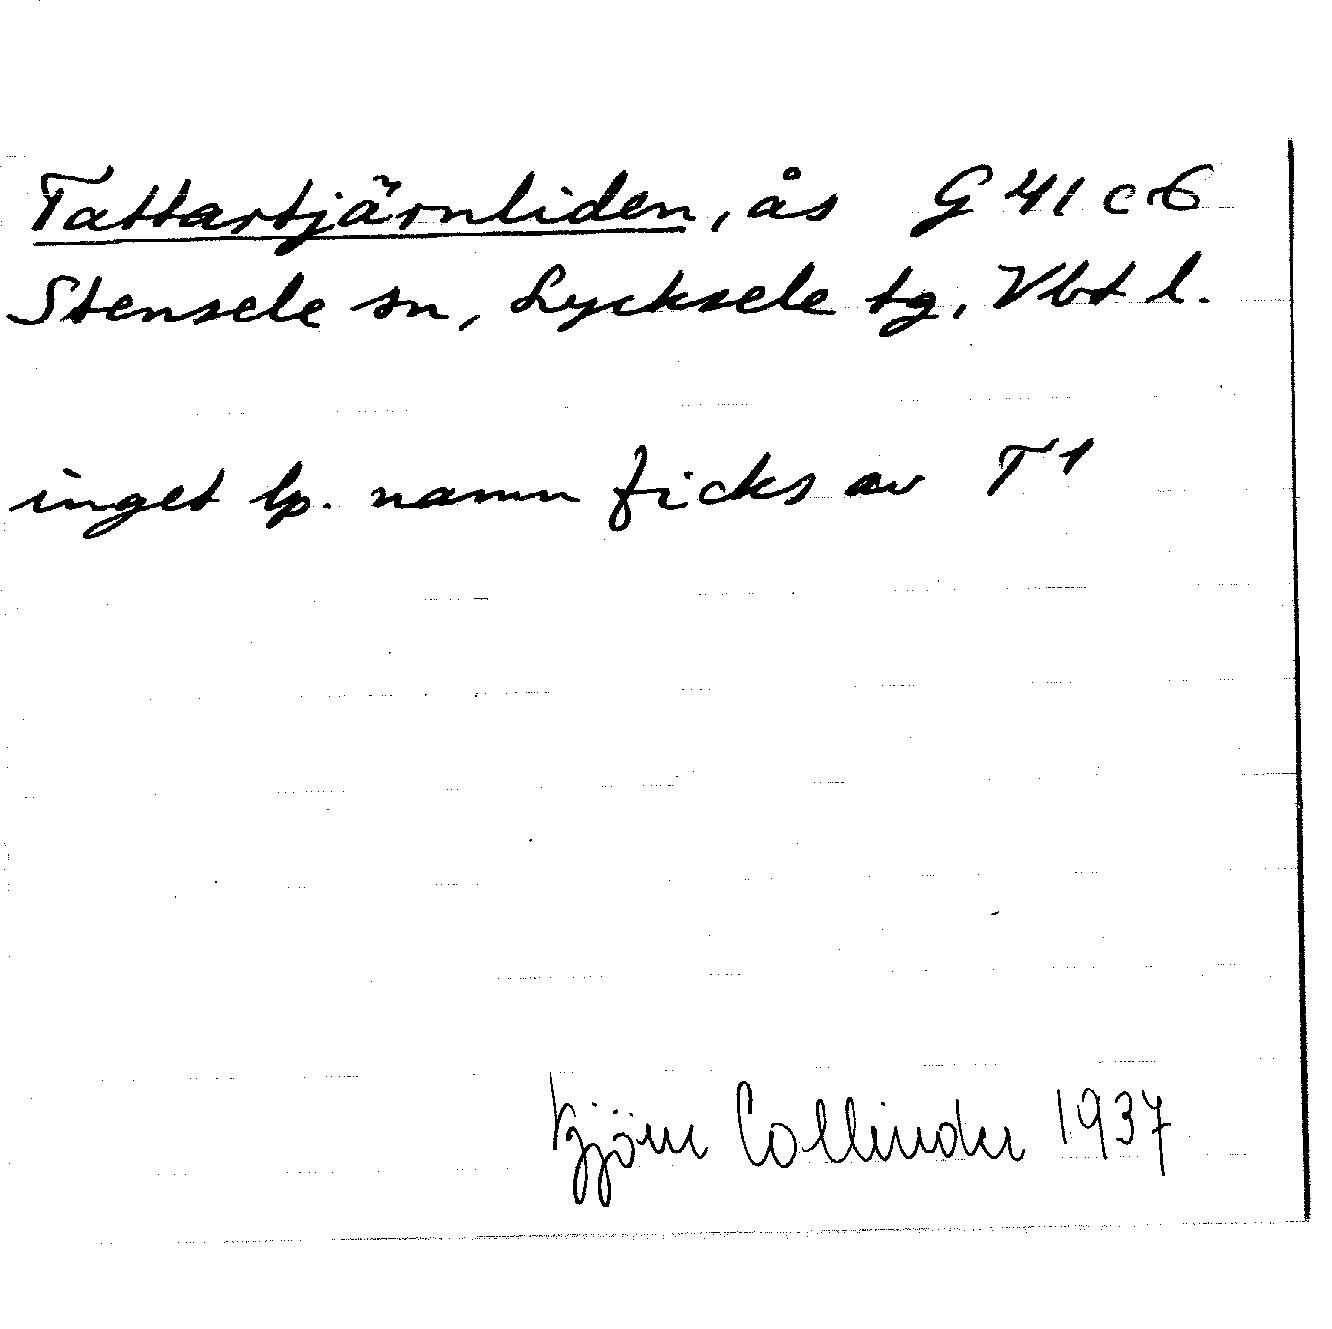 Tattartjärnliden, ås G 41 c 6
Stensele sn, Lycksele tg, Vbt l.
inget lp. namn ficks av T 1
Björn Collinder 1937